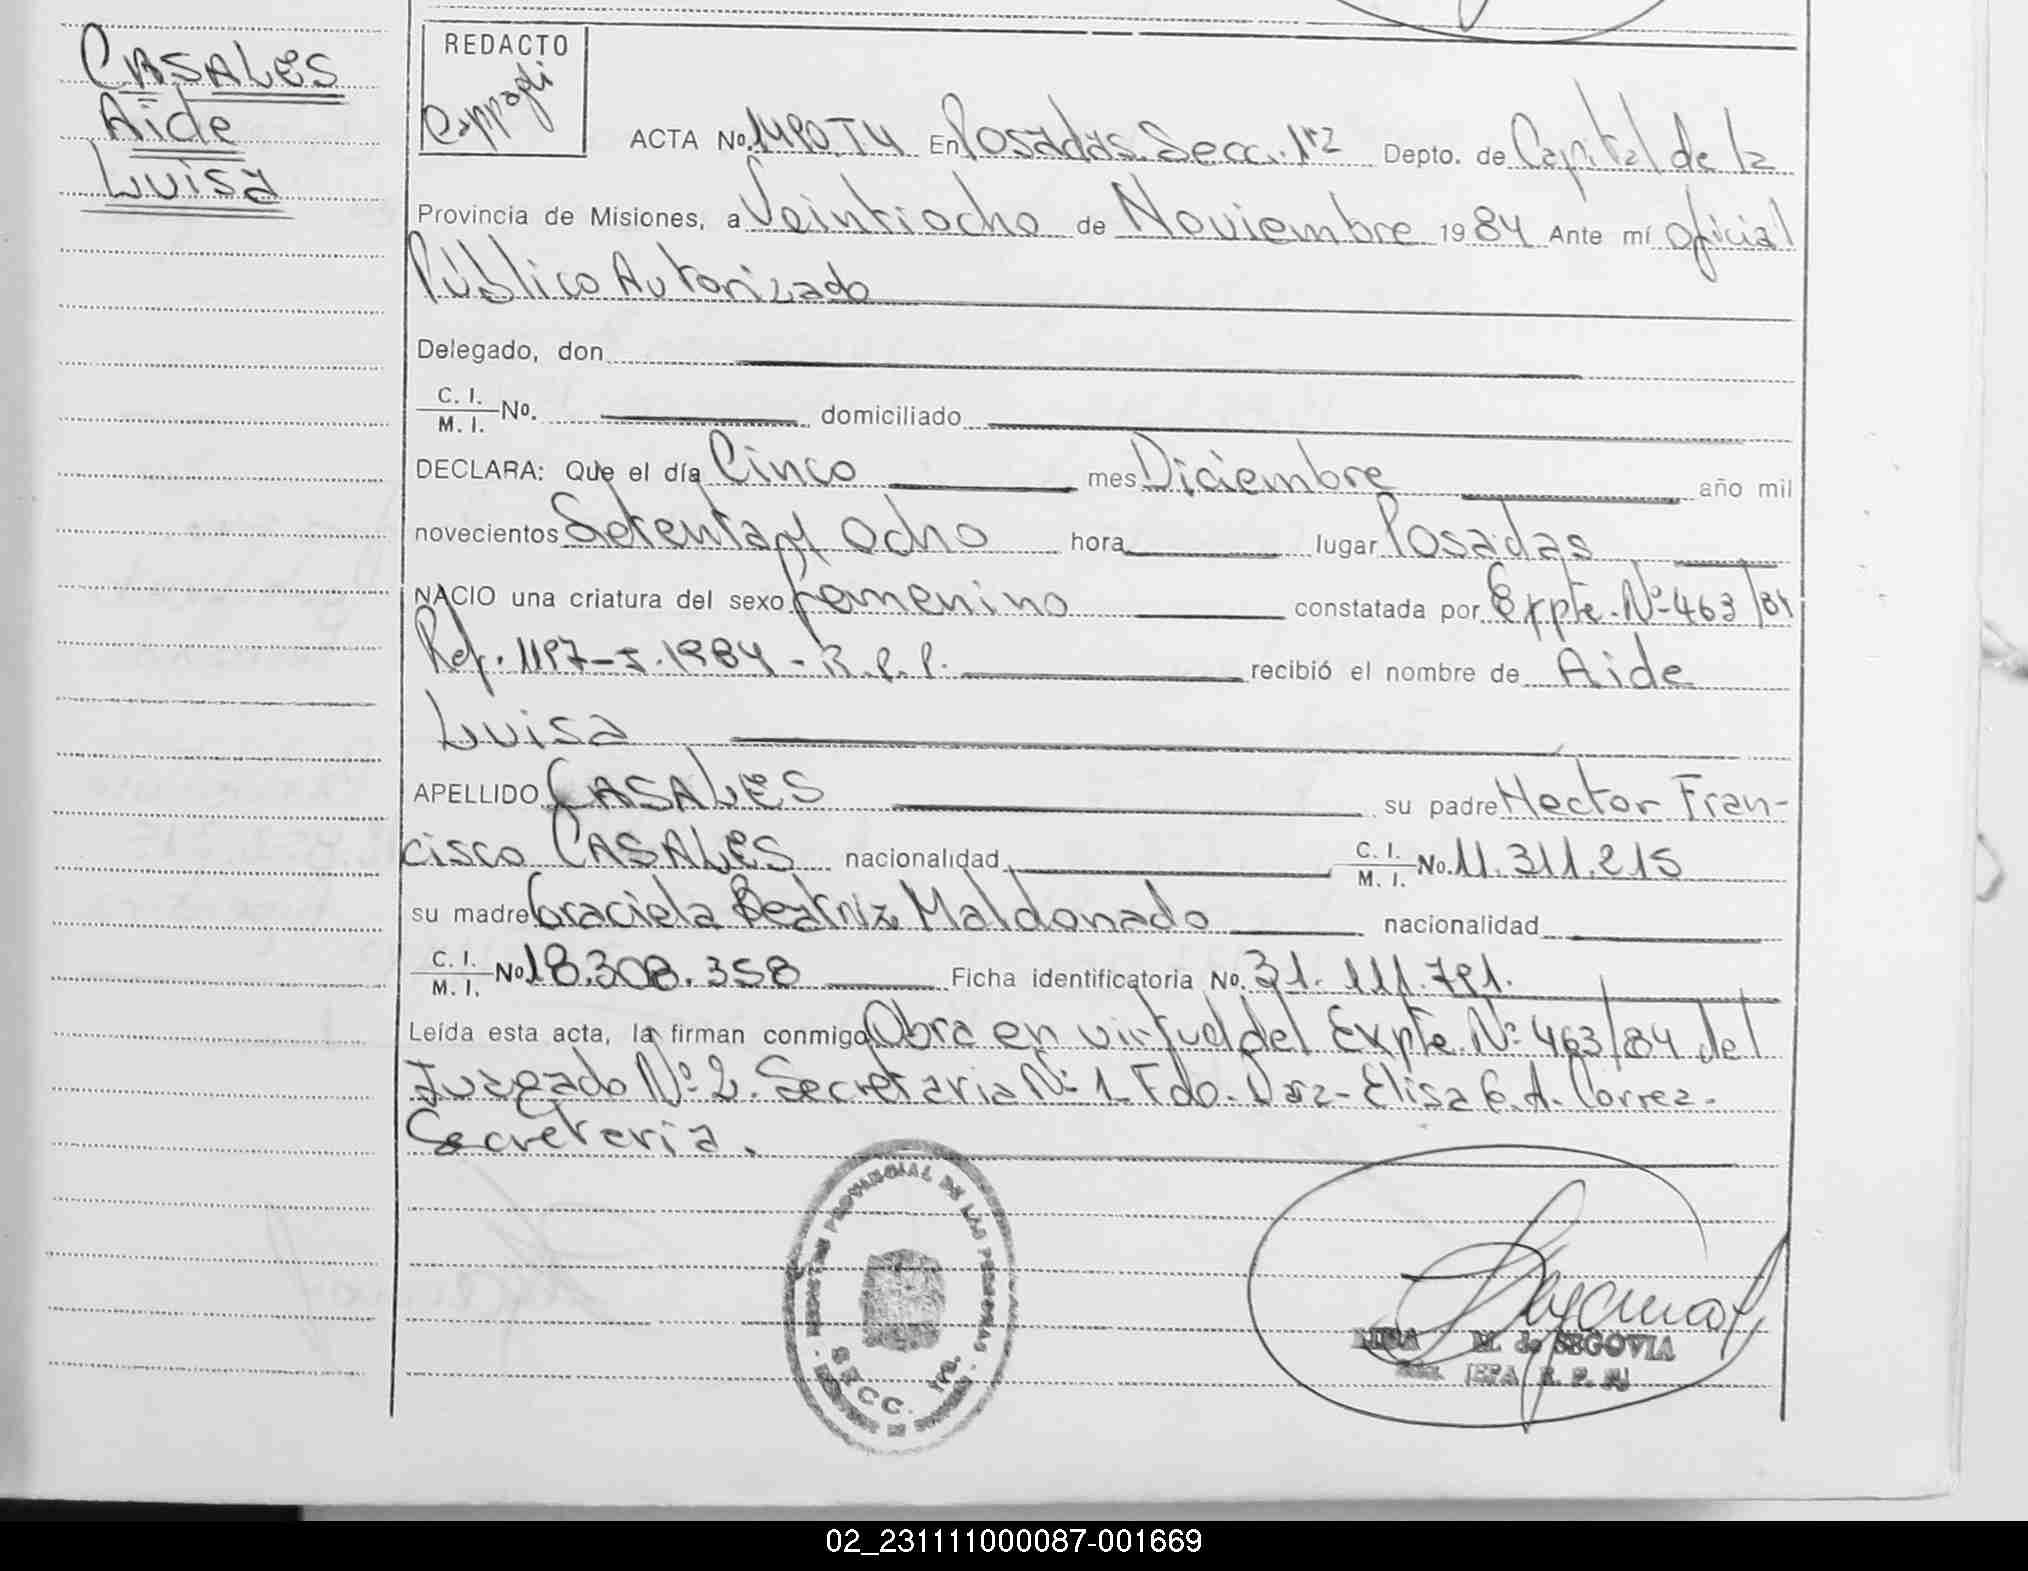 CASALES
Aide
Luisa
REDACTO
ACTA No. 1490. T4 En Posadas. Secc. 1ra Depto. de Capital de la
Provincia de Misiones, a Veintiocho de Noviembre 1984 Ante mí oficial
Público Autorizado
Delegado, don
C. I.
M. I. No. domiciliado
DECLARA: Que el día Cinco mes Diciembre año mil
novecientos Setenta y Ocho hora lugar Posadas
NACIO una criatura del sexo femenino constatada por Expte. Nº 463/84
Ref. 1197-J.1984-R.P.P. recibió el nombre de Aide
Luisa
APELLIDO CASALES su padre Hector Fran-
cisco CASALES nacionalidad C. I. M. I. No. 11.311.215
su madre Graciela Beatriz Maldonado nacionalidad
C. I. M. I. No 18.308.358 Ficha identificatoria No. 31.111.791.
Leída esta acta, la firman conmigo Obra en virtud del Expte. Nº 463/84 del
Juzgado Nº 2. Secretaria Nº 1. Fdo. Dra- Elisa E. A. Correa-
Secreteria.
PROVINCIAL DE LAS PERSONAS
SECC. 1ra.
M. de SEGOVIA
JEFA R. P. P.
02_231111000087-001669